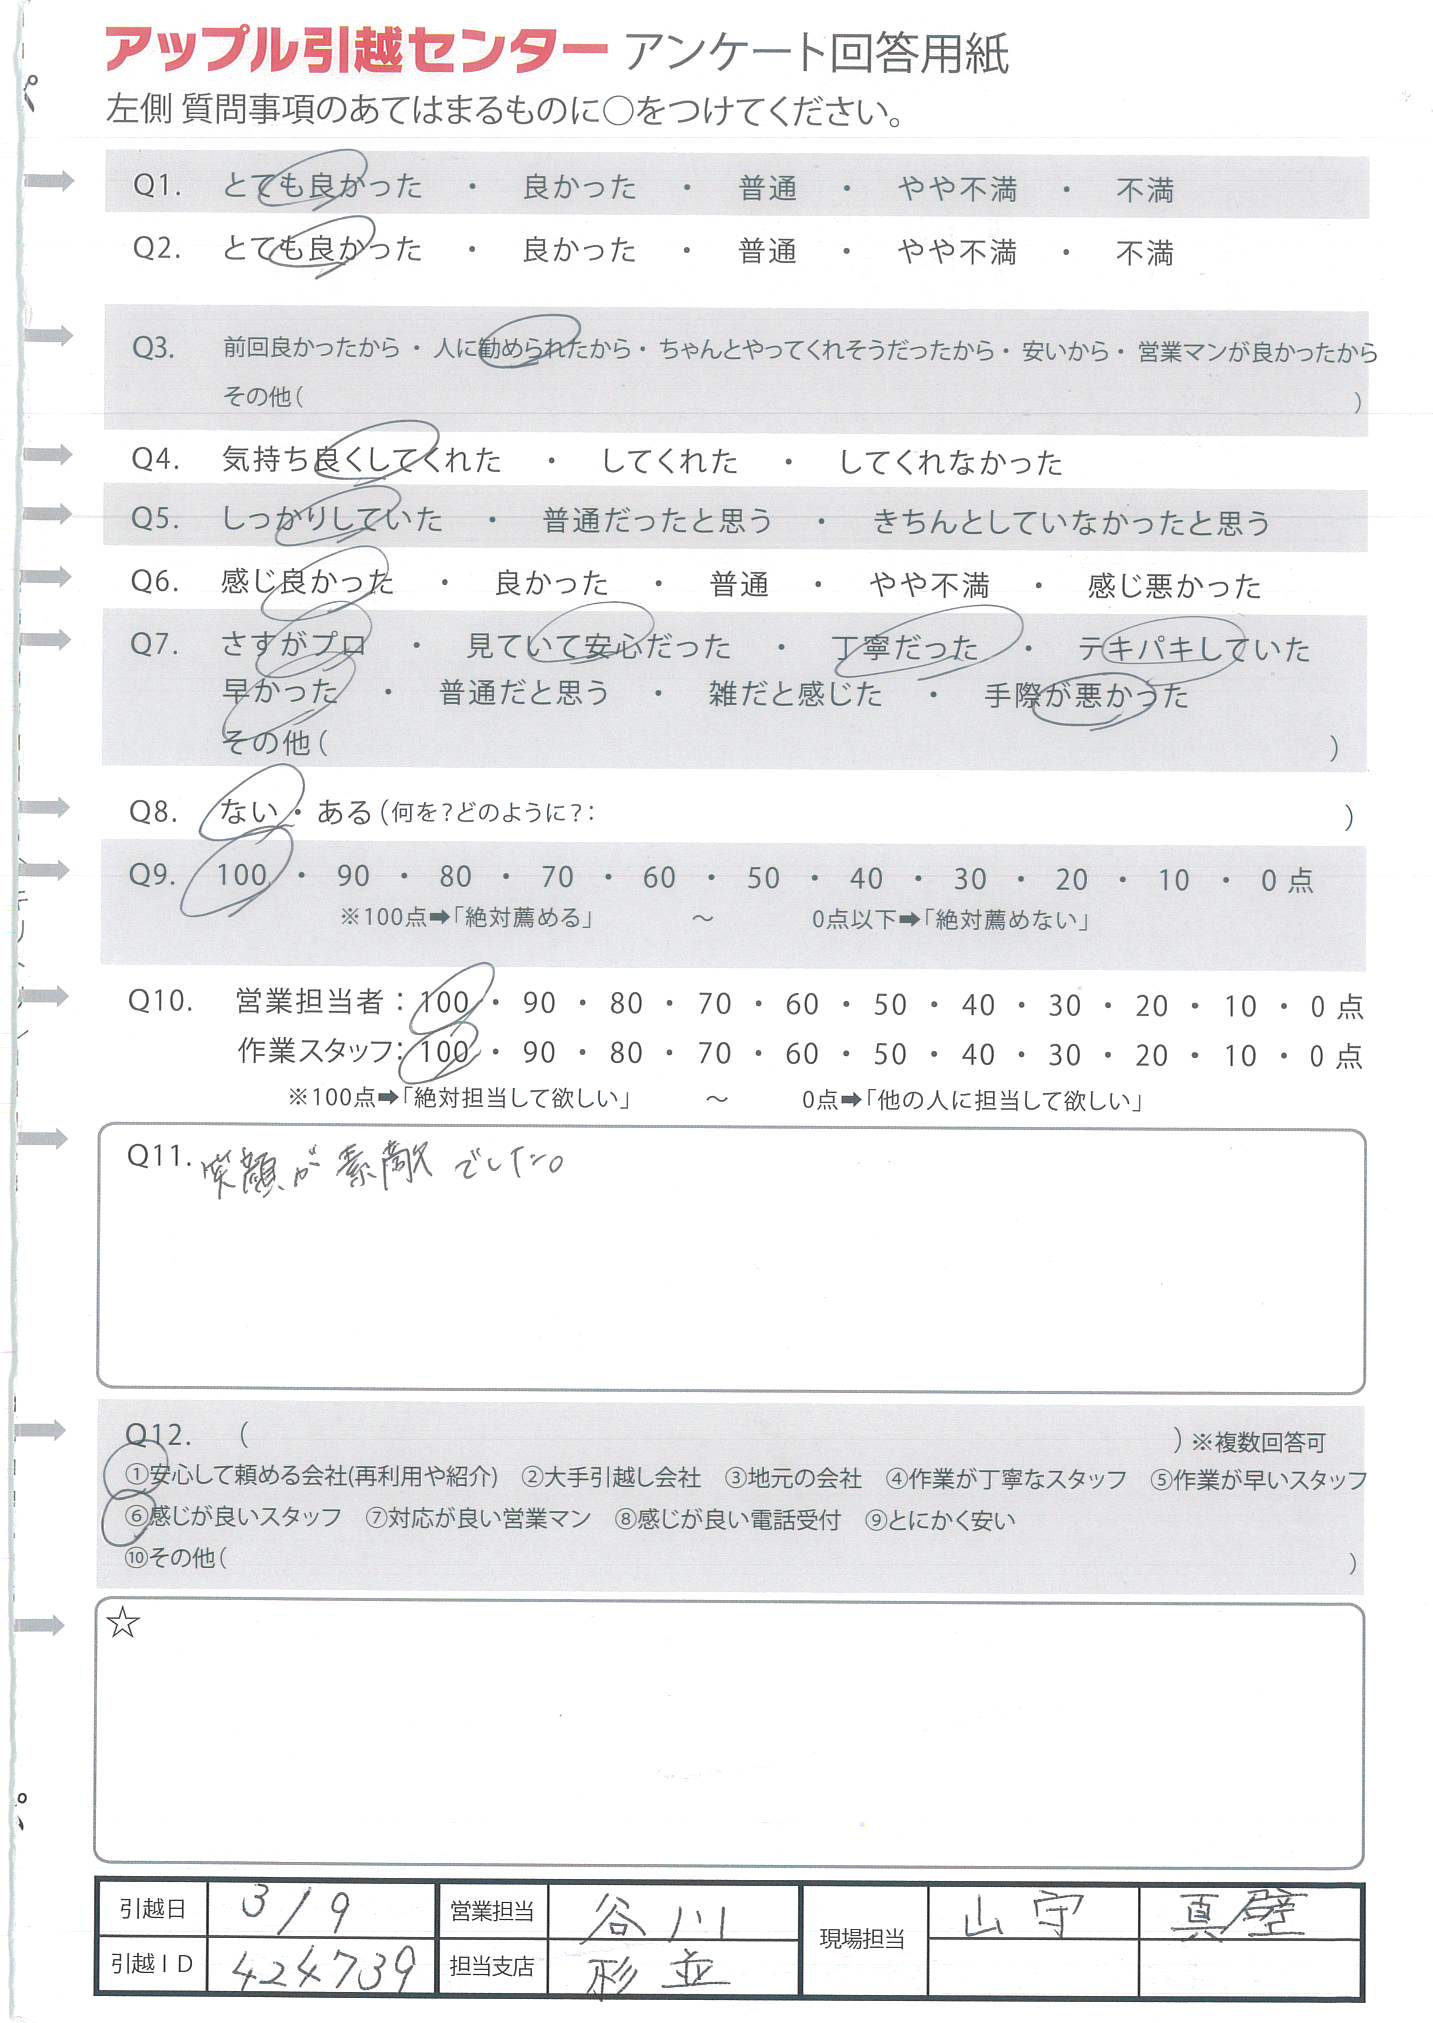 アップル引越センター アンケート回答用紙
左側 質問事項のあてはまるものに○をつけてください。
Q1. とても良かった ・ 良かった ・ 普通 ・ やや不満 ・ 不満
Q2. とても良かった ・ 良かった ・ 普通 ・ やや不満 ・ 不満
Q3. 前回良かったから ・ 人に勧められたから ・ ちゃんとやってくれそうだったから ・ 安いから ・ 営業マンが良かったから
その他( )
Q4. 気持ち良くしてくれた ・ してくれた ・ してくれなかった
Q5. しっかりしていた ・ 普通だったと思う ・ きちんとしていなかったと思う
Q6. 感じ良かった ・ 良かった ・ 普通 ・ やや不満 ・ 感じ悪かった
Q7. さすがプロ ・ 見ていて安心だった ・ 丁寧だった ・ テキパキしていた
早かった ・ 普通だと思う ・ 雑だと感じた ・ 手際が悪かった
その他( )
Q8. ない ・ ある(何を?どのように?: )
Q9. 100 ・ 90 ・ 80 ・ 70 ・ 60 ・ 50 ・ 40 ・ 30 ・ 20 ・ 10 ・ 0 点
※100点➡「絶対薦める」 ～ 0点以下➡「絶対薦めない」
Q10. 営業担当者 : 100 ・ 90 ・ 80 ・ 70 ・ 60 ・ 50 ・ 40 ・ 30 ・ 20 ・ 10 ・ 0 点
作業スタッフ: 100 ・ 90 ・ 80 ・ 70 ・ 60 ・ 50 ・ 40 ・ 30 ・ 20 ・ 10 ・ 0 点
※100点➡「絶対担当して欲しい」 ～ 0点➡「他の人に担当して欲しい」
Q11. 笑顔が素敵でした。
Q12. ( ) ※複数回答可
①安心して頼める会社(再利用や紹介) ②大手引越し会社 ③地元の会社 ④作業が丁寧なスタッフ ⑤作業が早いスタッフ
⑥感じが良いスタッフ ⑦対応が良い営業マン ⑧感じが良い電話受付 ⑨とにかく安い
⑩その他( )
☆
引越日 3/9 営業担当 谷川 現場担当 山守 真壁
引越ID 424739 担当支店 杉並